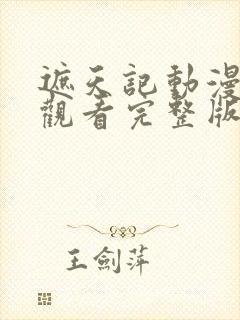 遮天記動漫
觀看完整版
王劍萍